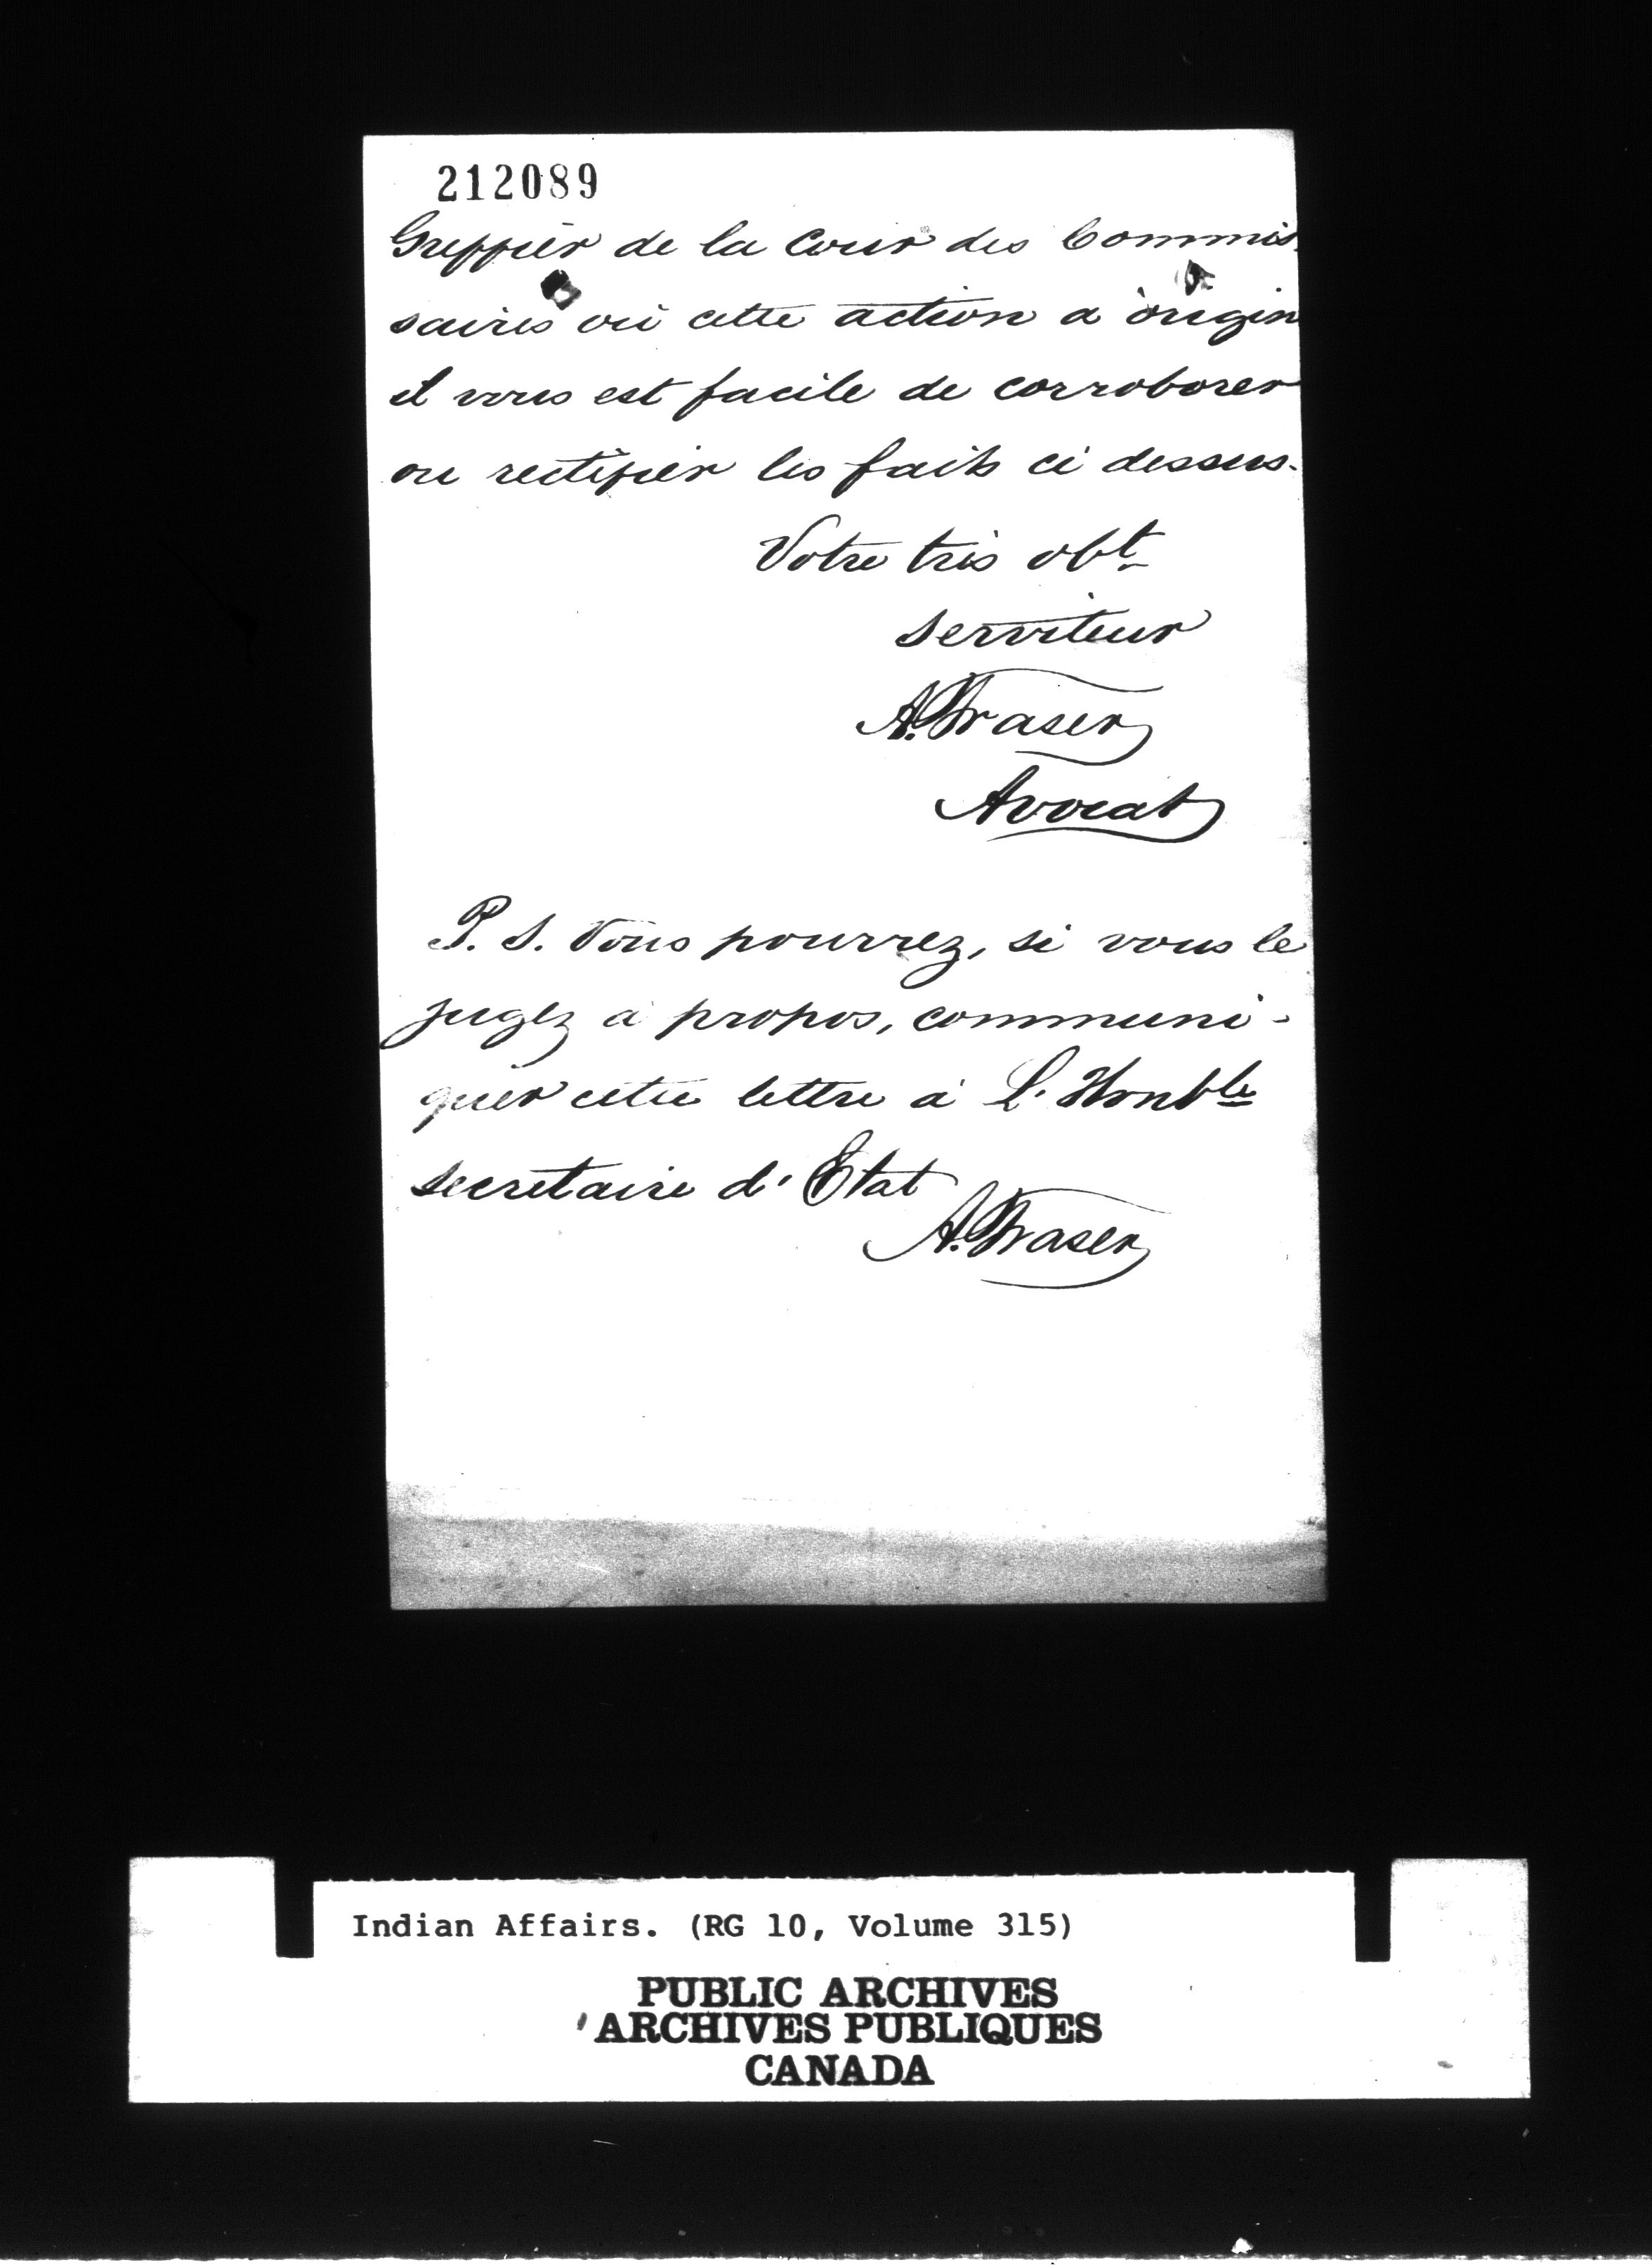 212089
Greffier de la Cour des Commis
saires où cette action a origin
il vous est facile de corroborer
ou rectifier les faits ci dessus.
Votre très obt
serviteur
A. Fraser
Avocat
P. S. Vous pourrez, si vous le
jugez à propos, communi-
quer cette lettre à L'Honble
secretaire d'Etat
A. Fraser
Indian Affairs. (RG 10, Volume 315)
PUBLIC ARCHIVES
ARCHIVES PUBLIQUES
CANADA